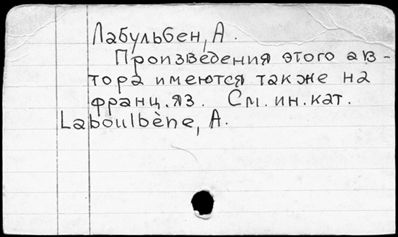 Лабульбен, А.
Произведения этого ав-
тора имеются также на
франц. яз. См. ин. кат.
Laboulbène, A.